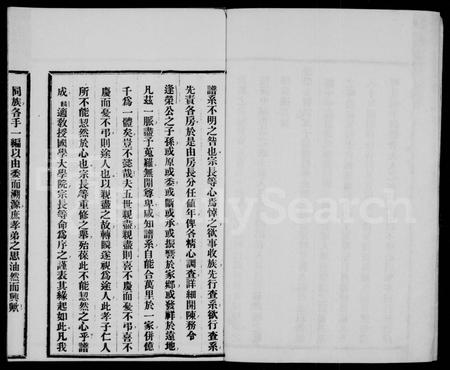 譜系不明之咎也宗長等心焉悼之欲事收族先行查系欲行查系
先責各房於是由房長分任値年俾各精心調查詳細開陳務令
逢榮公之子孫或原或委或斷或承或振譽於家鄉或發祥於遠地
凡茲一脈盡予蒐羅無間尊卑咸知譜系自能合萬里於一家併億
千爲一體矣豈不懿哉夫五世親盡親盡則喜不慶而憂不弔喜不
慶而憂不弔則途人也以親盡之故轉瞬遂視爲途人此孝子仁人
所不能恝然於心也宗長等重修之舉殆葆此不能恝然之心乎譜
成 適敎授國學大學院宗長等命爲序之謹表其緣起如此凡我
同族各手一編以由委而溯源庶孝弟之思油然而興歟
Search